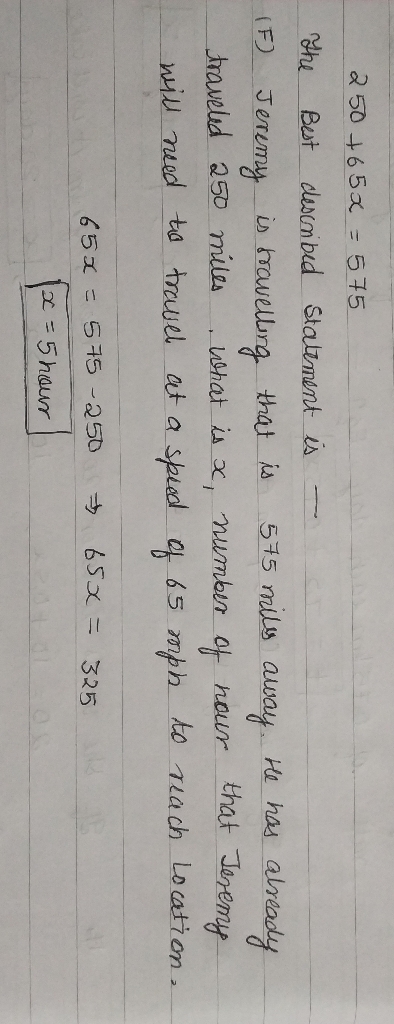 250 + 65x = 575
The Best described Statement is —
(F) Jeremy is travelling that is 575 miles away. He has already
traveled 250 miles, what is x, number of hour that Jeremy
will need to travel at a speed of 65 mph to reach Location.
65x = 575 - 250 ⇒ 65x = 325
x = 5 hour